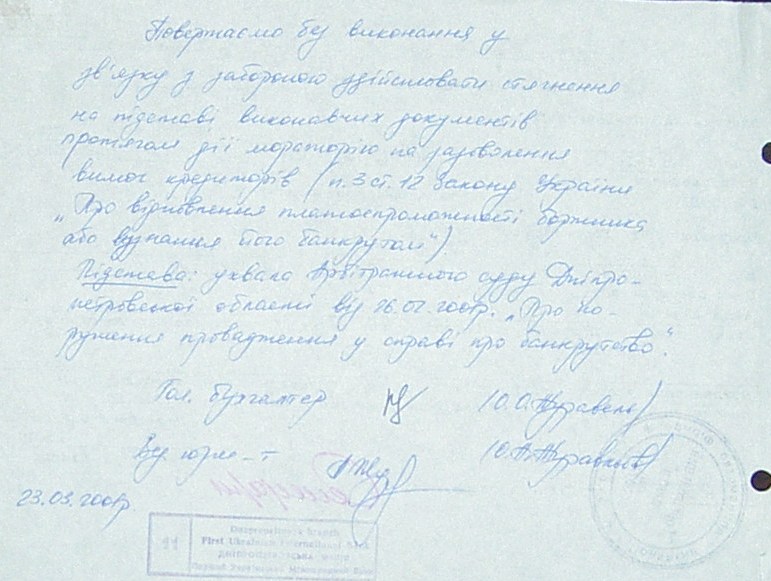 Повертаємо без виконання у
зв'язку з забороною здійснювати стягнення
на підставі виконавчих документів
протягом дії мораторію на задоволення
вимог кредиторів (п.3 ст.12 Закону України
„Про відновлення платоспроможності боржника
або визнання його банкрутом“).
Підстава: ухвала Арбітражного суду Дніпро-
петровської області від 26.02.2001р. „Про по-
рушення провадження у справі про банкрутство“.
Гол. бухгалтер (О.О.Журавель)
Вед. юрис-т
23.03.2001р
11
Dnepropetrovsk branch
First Ukrainian International Bank
ДНІПРОПЕТРОВСЬКА ФІЛІЯ
Перший Український Міжнародний Банк